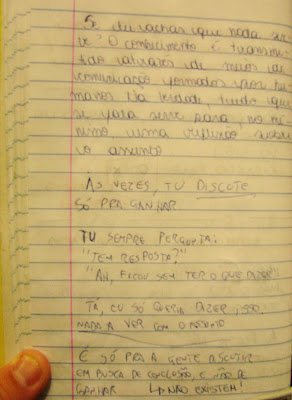 Se tu achas que nada ser-
ve? O conhecimento é transmi-
tido através de meios de
comunicação formados por hu-
manos. Na verdade, tudo que
se fala serve para, no mí-
nimo, uma reflexão sobre
o assunto
ÀS VEZES, TU DISCUTE,
SÓ PRA GANHAR
TU SEMPRE PERGUNTA:
"TEM RESPOSTA?"
"AH, FICOU SEM TER O QUE DIZER"
TÁ, EU SÓ QUERIA DIZER ISSO.
NADA A VER COM O ASSUNTO
É SÓ PRA A GENTE DISCUTIR
EM BUSCA DE CONCLUSÃO, E NÃO DE
GANHAR ↳ NÃO EXISTEM!